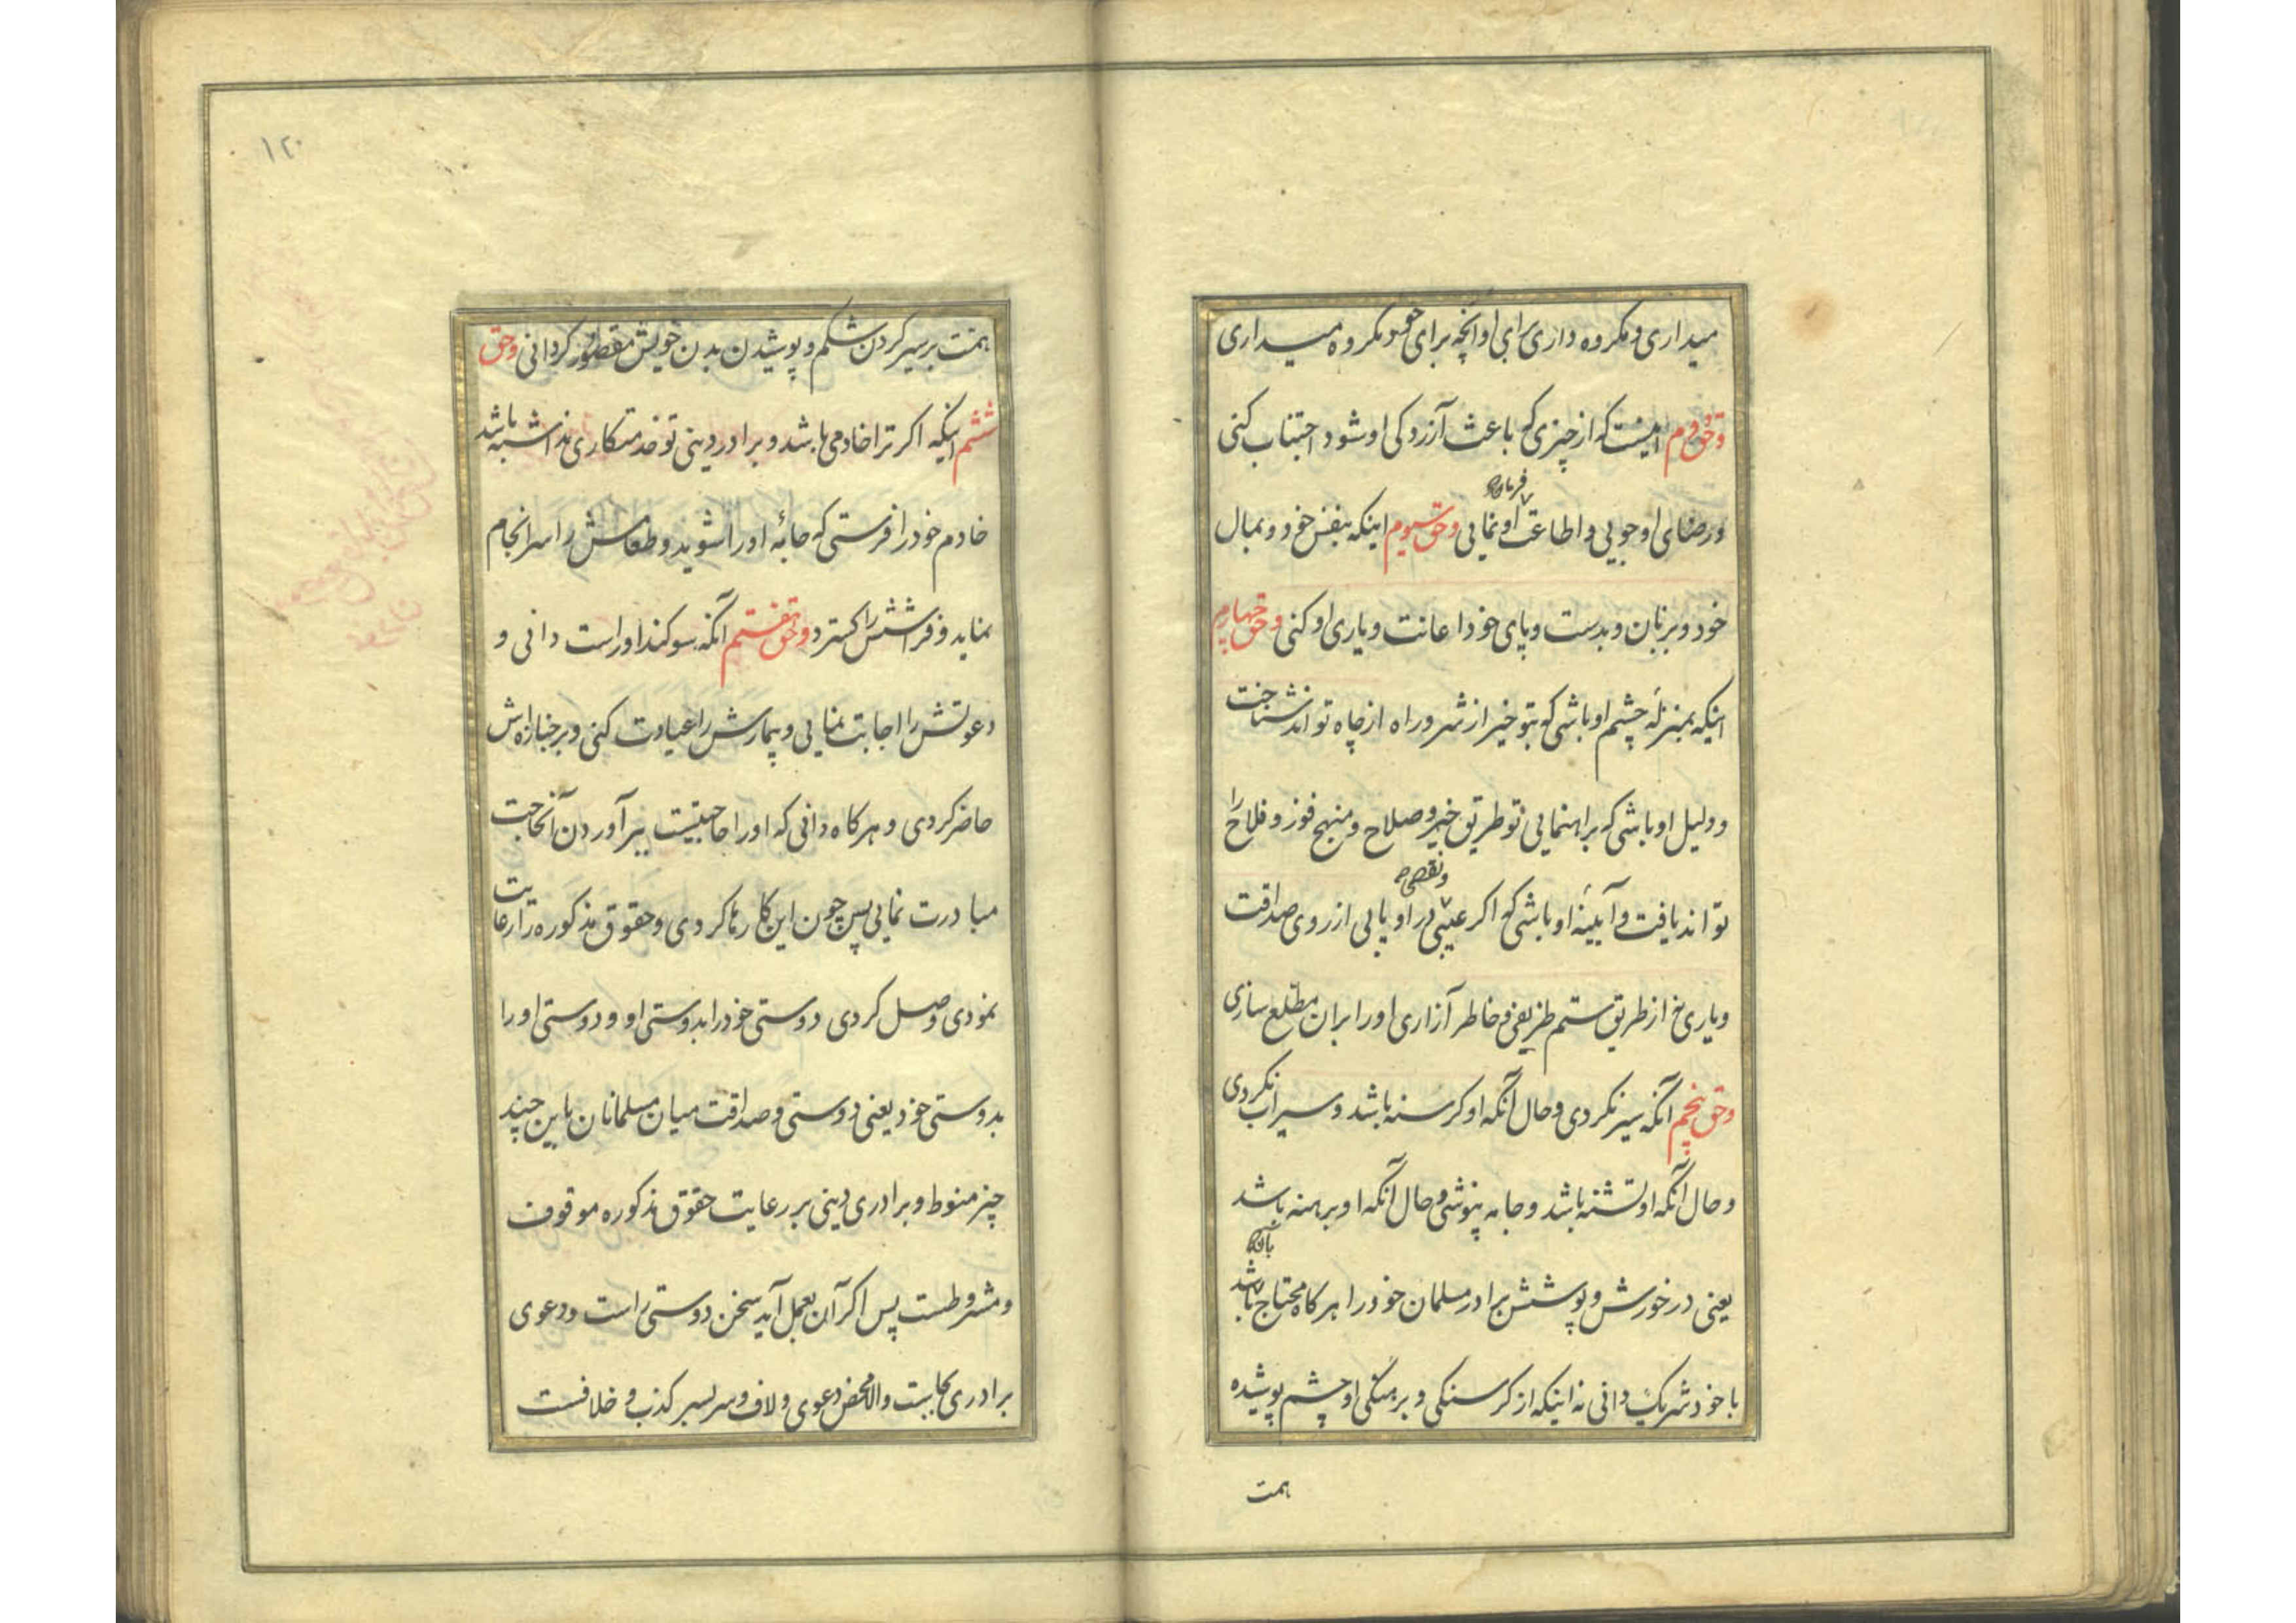 میداری و مکروه داری برای او آنچه برای خود مکروه میداری
و حق دوم اینست که از چیزی که باعث آزردکی او شود اجتناب کنی
و رضای او جویی و اطاعت او نمایی و حق سیوم اینکه بنفس خود و بمال
فرمان
خود و بزبان و بدست و پای خود اعانت و یاری او کنی و حق چهارم
اینکه بمنزلهٔ چشم او باشی که بتو خیر از شر و راه از چاه تواند شناخت
و دلیل او باشی که براهنمایی تو طریق خیر و صلاح و منهج فوز و فلاح را
تواند یافت و آیینهٔ او باشی که اکر عیبی در او یابی از روی صداقت
و نقصی
و یاری نه از طریق ستم ظریفی و خاطر آزاری او را بران مطلع سازی
و حق پنجم آنکه سیر نکردی و حال آنکه او کرسنه باشد و سیراب نکردی
و حال آنکه او تشنه باشد و جامه نپوشی و حال آنکه او برهنه باشد
یعنی در خورش و پوشش برادر مسلمان خود را هر کاه محتاج باشد
بآن
با خود شریک دانی نه اینکه از کرسنکی و برهنکی او چشم پوشیده
همت
۱۲۰
همت بر سیر کردن شکم و پوشیدن بدن خویش مقصور کردانی و حق
ششم اینکه اکر ترا خادمی باشد و برادر دینی تو خدمتکاری نداشته باشد
خادم خود را فرستی که جامهٔ او را شوید و طعامش را سرانجام
نماید و فراشش را کسترد و حق هفتم آنکه سوکند او راست دانی و
دعوتش را اجابت نمایی و بیمارش را عیادت کنی و بر جنازه‌اش
حاضر کردی و هر کاه دانی که او را حاجتیست ببر آوردن آنحاجت
مبادرت نمایی پس چون این کارها کردی و حقوق مذکوره را رعایت
نمودی وصل کردی دوستی خود را بدوستی او و دوستی او را
بدوستی خود یعنی دوستی و صداقت میان مسلمانان باین چند
چیز منوط و برادری دینی بر رعایت حقوق مذکوره موقوف
و مشروطست پس اکر آن بعمل آید سخن دوستی راست و دعوی
برادری بجاست والا محض دعوی و لاف و سربسر کذب و خلافست